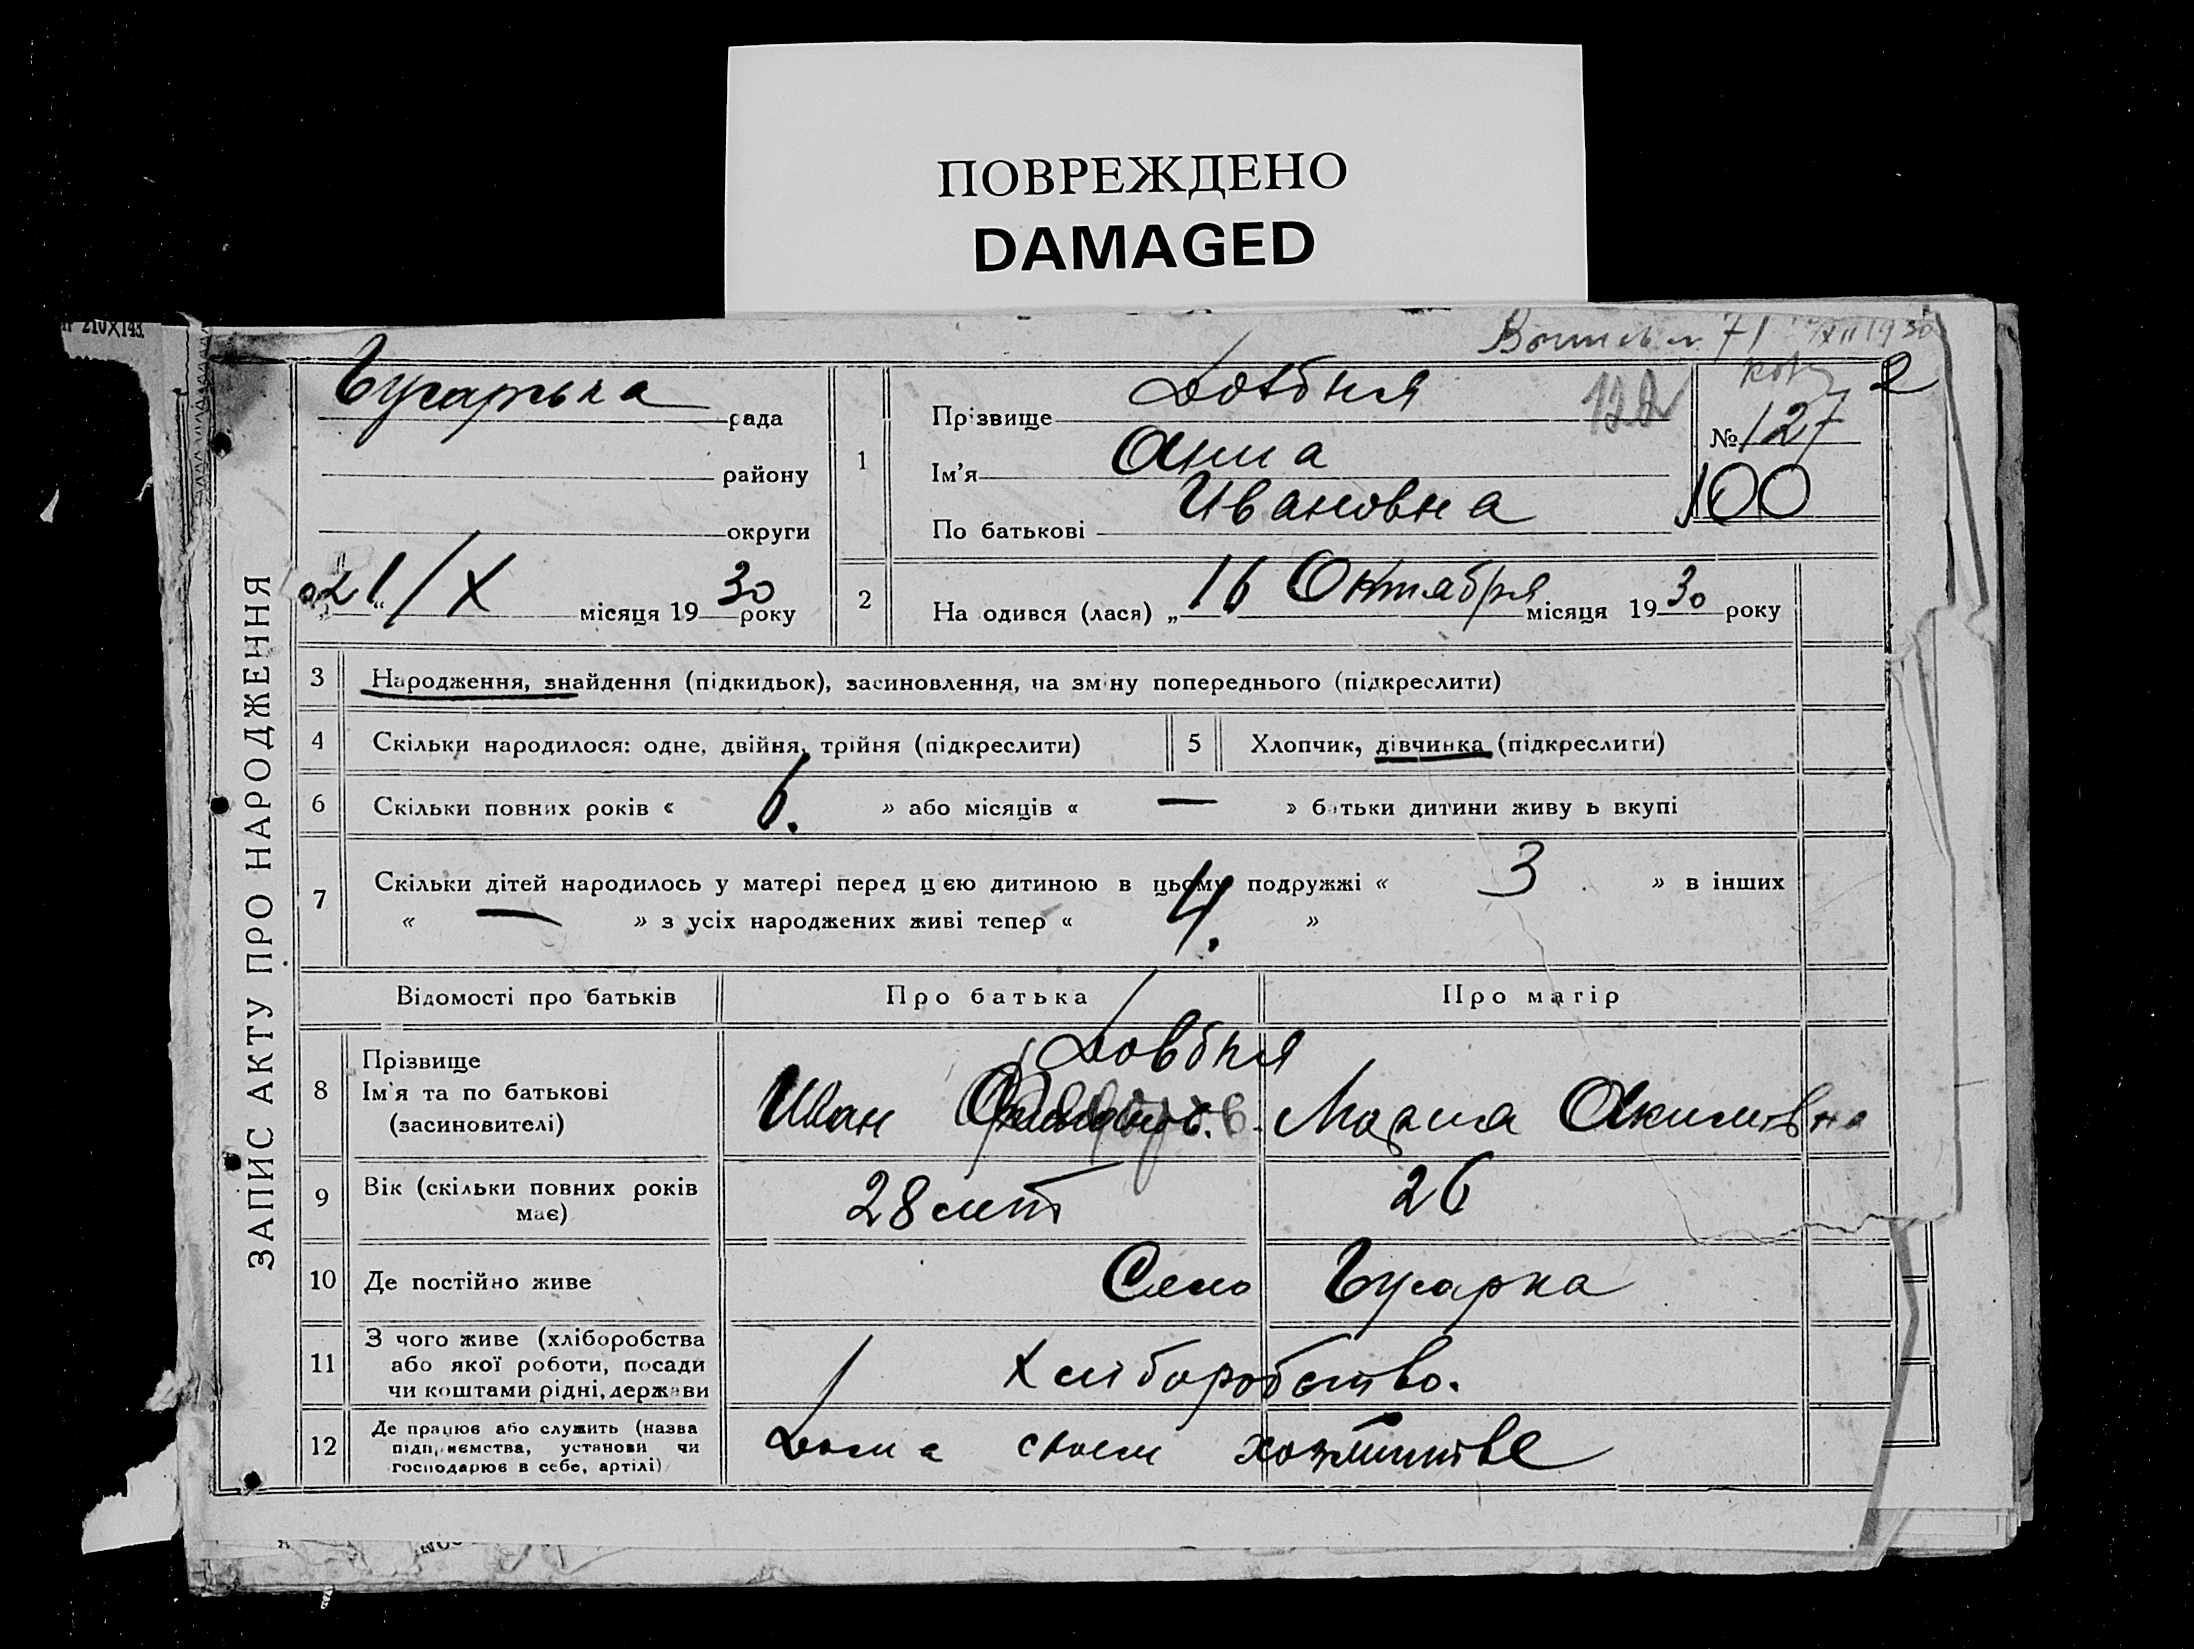 ПОВРЕЖДЕНО
DAMAGED
210X143.
71 XII 1930
2
Бугарська рада
району
округи
21/X місяця 1930 року
1
Прізвище Довбня
Ім'я Анна
По батькові Ивановна
№ 127
100
2
На одився (лася) „16 Октября місяця 1930 року
ЗАПИС АКТУ ПРО НАРОДЖЕННЯ
3 Народження, знайдення (підкидьок), засиновлення, на зміну попереднього (підкреслити)
4 Скільки народилося: одне, двійня, трійня (підкреслити)
5 Хлопчик, дівчинка (підкреслити)
6 Скільки повних років « 6. » або місяців « — » батьки дитини живу ь вкупі
7 Скільки дітей народилось у матері перед цією дитиною в цьому подружжі « 3 » в інших
« — » з усіх народжених живі тепер « 4. »
Відомості про батьків Про батька Про матір
8 Прізвище Довбня
Ім'я та по батькові Иван Мария Акимовна
(засиновителі)
9 Вік (скільки повних років має) 28 лет 26
10 Де постійно живе Село Бугарка
11 З чого живе (хліборобства
або якої роботи, посади
чи коштами рідні, держави
Хліборобство.
12 Де працює або служить (назва
підприємства, установи чи
господарює в себе, артілі)
Дома своем хозяйстве